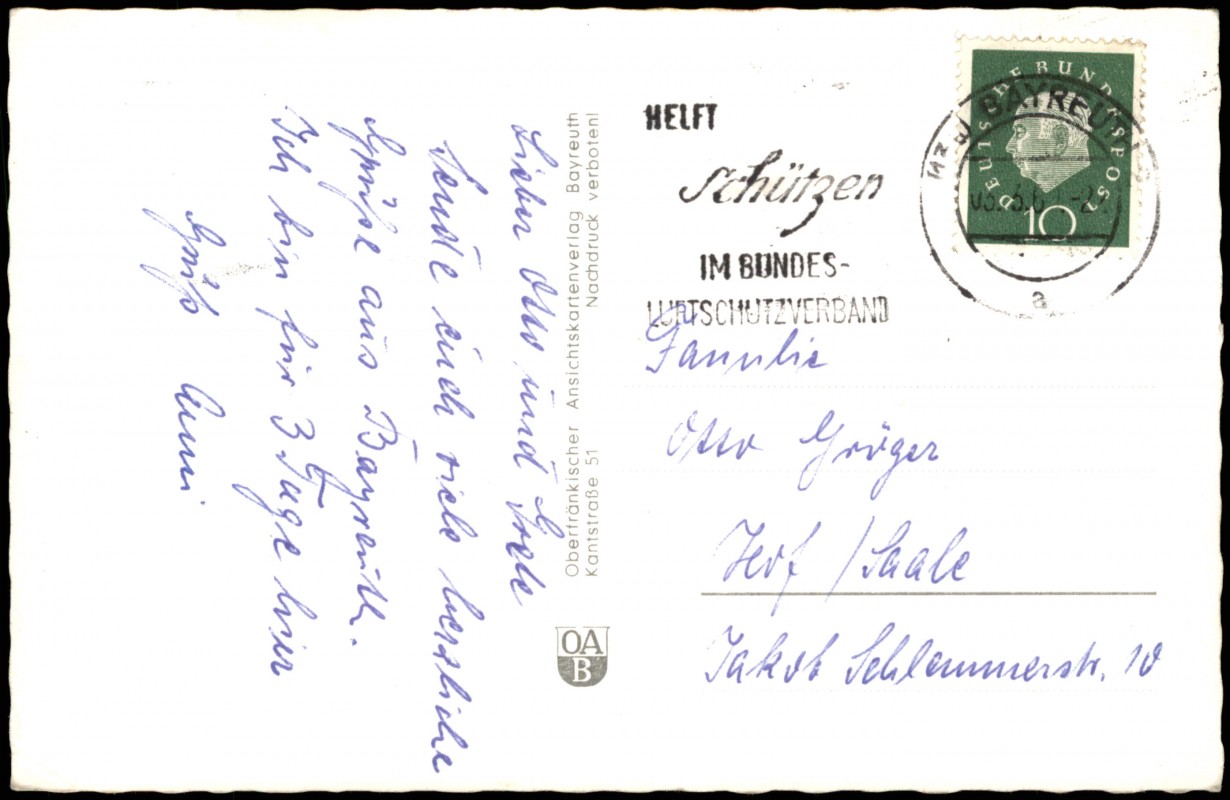 Lieber Otto und Grete
Sende euch viele herzliche
Grüße aus Bayreuth.
Ich bin für 3 Tage hier
Gruß Anni
Oberfränkischer Ansichtskartenverlag Bayreuth
Kantstraße 51 Nachdruck verboten!
OA
B
HELFT
schützen
IM BUNDES-
LUFTSCHUTZVERBAND
DEUTSCHE BUNDESPOST
10
BAYREUTH
a
Familie
Otto Gröger
Hof / Saale
Jakob Schlemmerstr. 10